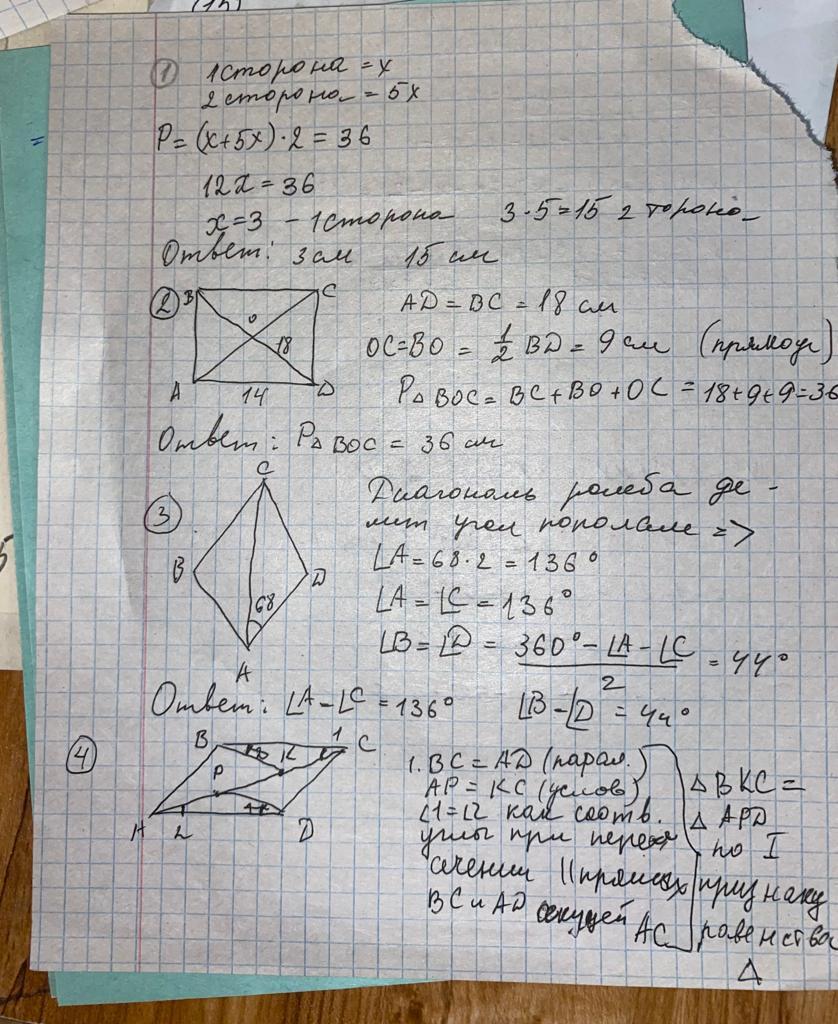 (1)
1 сторона = x
2 сторона = 5x
P = (x+5x)·2 = 36
12x = 36
x = 3 – 1 сторона 3·5=15 2 торона
Ответ: 3 см 15 см
2 B C
O
18
A 14 D
AD = BC = 18 см
OC=BO = 1/2 BD = 9 см (прямоуг)
P△ BOC = BC + BO + OC = 18+9+9=36
Ответ: P△ BOC = 36 см
3 C
B D
68
A
Диагональ ромба де -
лит угол пополам =>
∠A = 68·2 = 136°
∠A = ∠C = 136°
∠B = ∠D = (360° – ∠A – ∠C)/2 = 44°
Ответ: ∠A – ∠C = 136° ∠B – ∠D = 44°
4 B K 1 C
P
A 2 D
1. BC = AD (парал.)
AP = KC (услов)
∠1=∠2 как соотв.
углы при пере
сечении || прямых
BC и AD секущей AC
△ BKC =
△ APD
по I
признаку
равенства
△